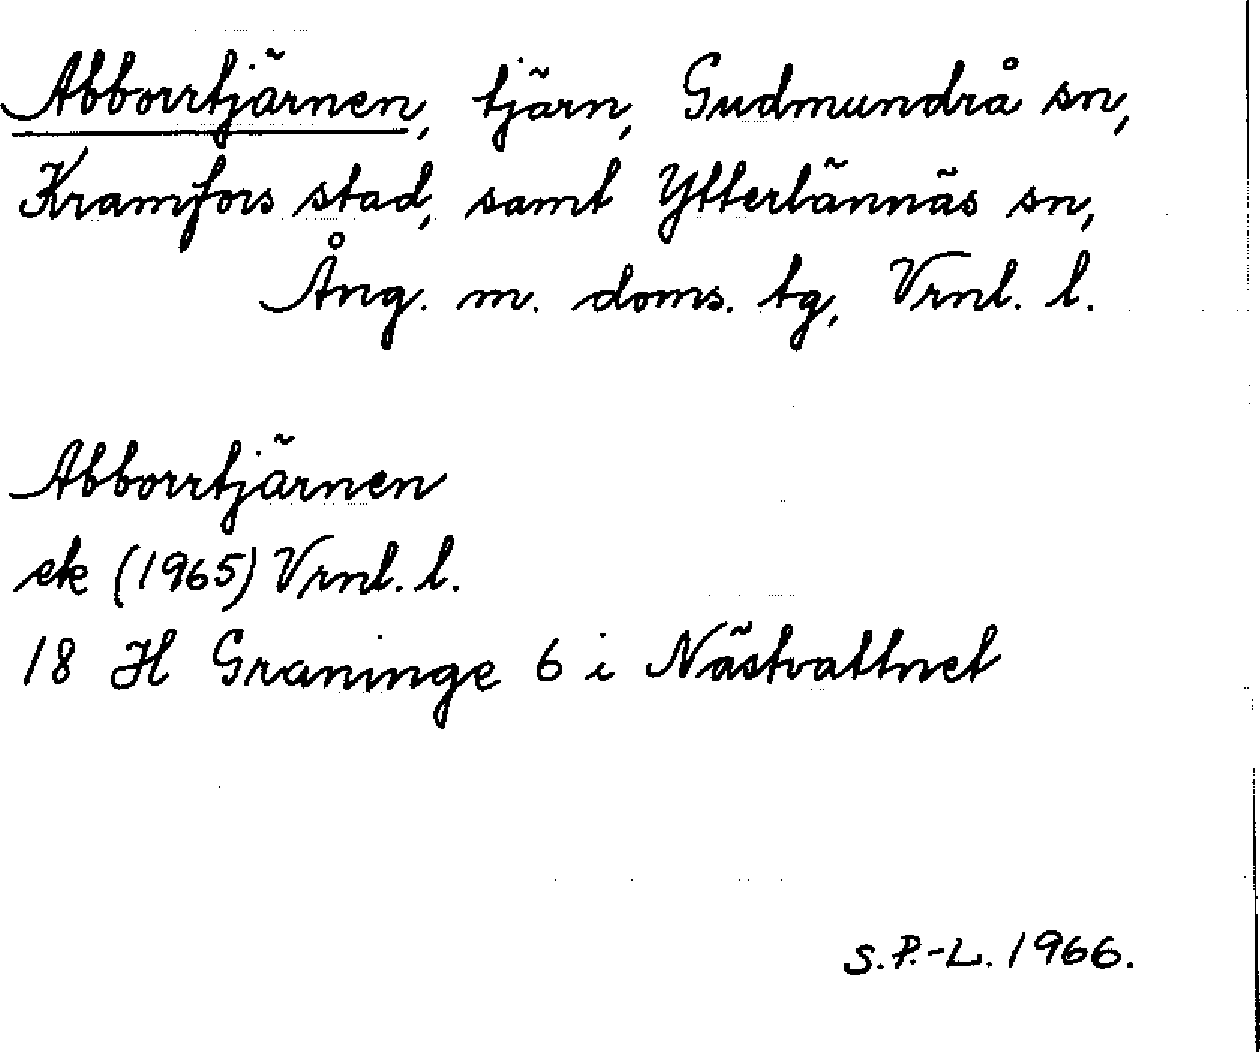 Abborrtjärnen, tjärn, Gudmundrå sn,
Kramfors stad, samt Ytterlännäs sn,
Ång. m. doms. tg, Vrnl. l.
Abborrtjärnen
ek (1965) Vrnl. l.
18 H Graninge 6 i Nästvattnet
S.P.-L. 1966.